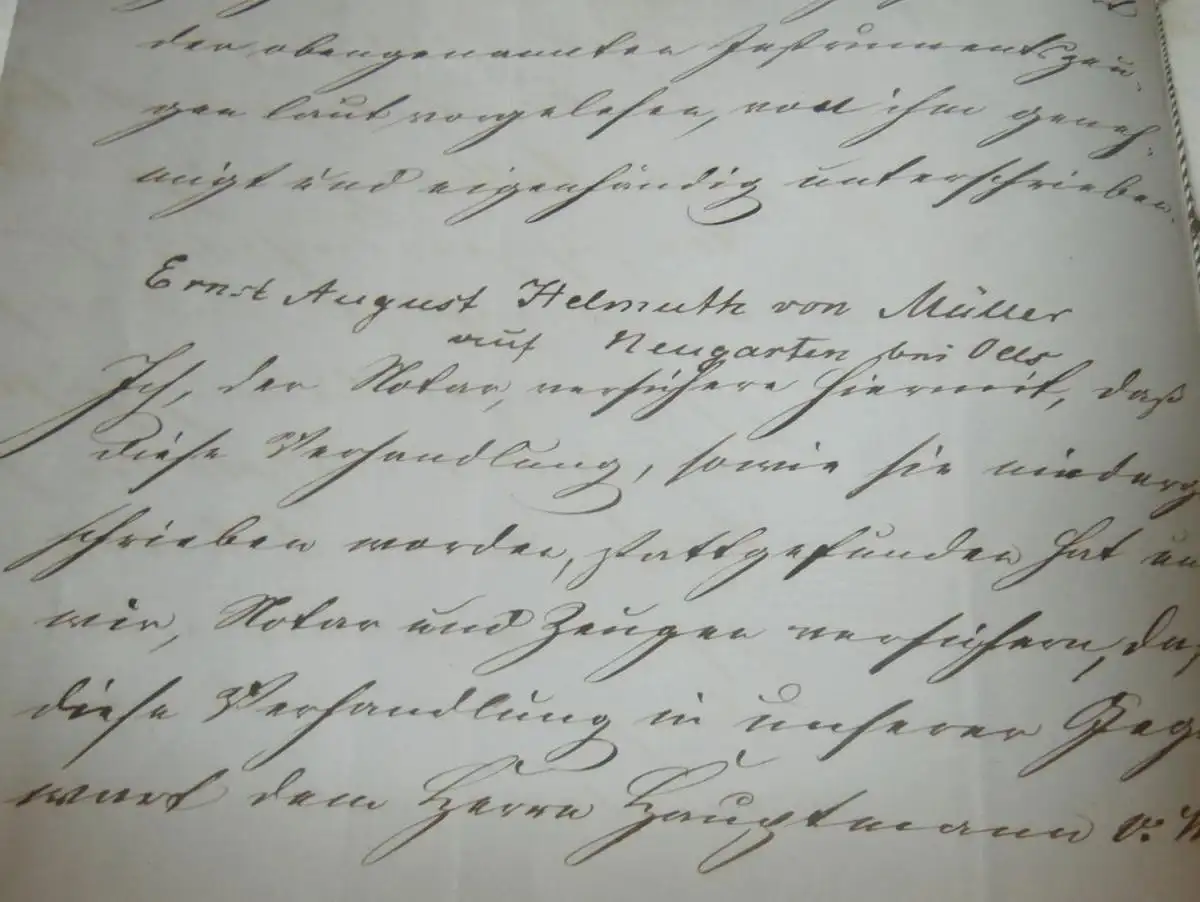 der obengenannten Instrumentszeu-
gen laut vorgelesen, von ihm geneh-
migt und eigenhändig unterschrieben.
Ernst August Helmuth von Müller
auf Neugarten bei Oels
Ich, der Notar, versichere hiermit, daß
diese Verhandlung, sowie sie niederg
schrieben worden, stattgefunden hat un
wir, Notar und Zeugen versichern, da
diese Verhandlung in unserer Gege
wart dem Herrn Hauptmann v.